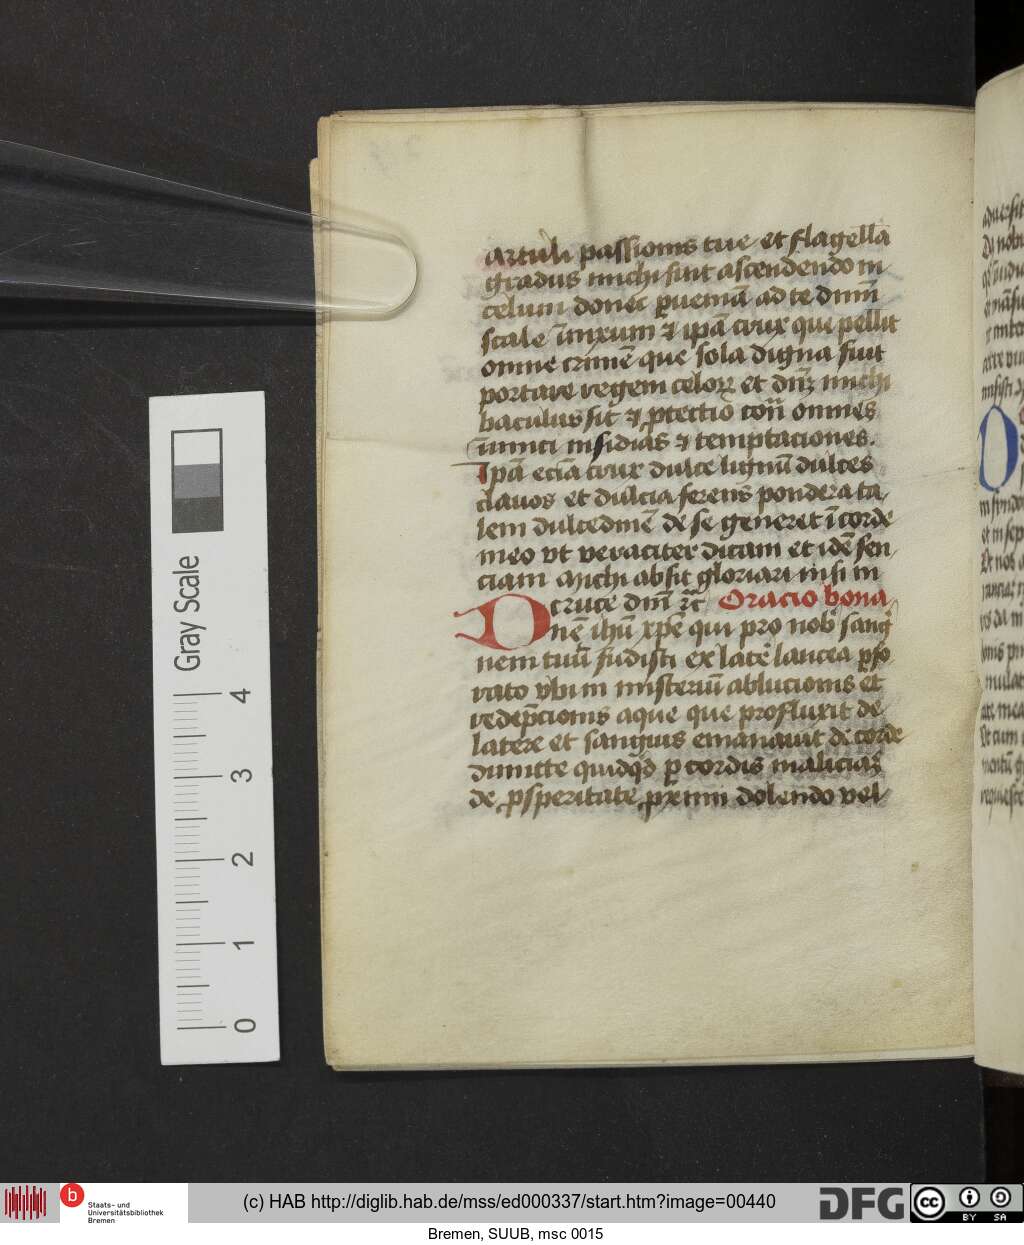 artuli passionis tue et flagella
gradus michi sint ascendendo in
celum donec ꝑueniā ad te dnm̄
scale īnixum ⁊ ipā crux que pellit
omne crimē que sola digna fuit
portare regem celoꝝ et dnꝫ michi
baculus sit ⁊ ꝓtectio con̄ omnes
īimici insidias ⁊ temptaciones.
Ipā eciā crux dulce lignū dulces
clauos et dulcia ferens pondera ta
lem dulcedinē de se generet ī corde
meo vt veraciter dicam et idē sen
ciam Michi absit gloriari nisi in
cruce dnī ꝛc̄ Oracio bona
Dnē ihū xp̄e qui pro nob̄ sang
nem tuū fudisti ex latē lancea ꝑfo
rato vbi in misteriū ablucionis et
redēpcionis aque que profluxit de
latere et sanguis emanauit de corde
dimitte quidq̄d ꝑ cordis maliciaꝫ
de ꝓsperitate ꝓximi dolendo vel
Gray Scale
4
3
2
1
0
b
Staats- und
Universitätsbibliothek
Bremen
(c) HAB http://diglib.hab.de/mss/ed000337/start.htm?image=00440
DFG
cc
BY SA
Bremen, SUUB, msc 0015